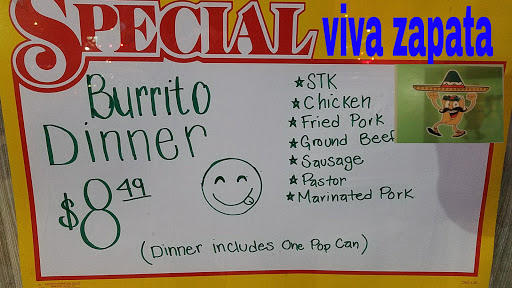 SPECIAL
viva zapata
Burrito
Dinner
$8.49
★STK
★Chicken
★Fried Pork
★Ground Beef
★Sausage
★Pastor
★Marinated Pork
(Dinner includes One Pop Can)